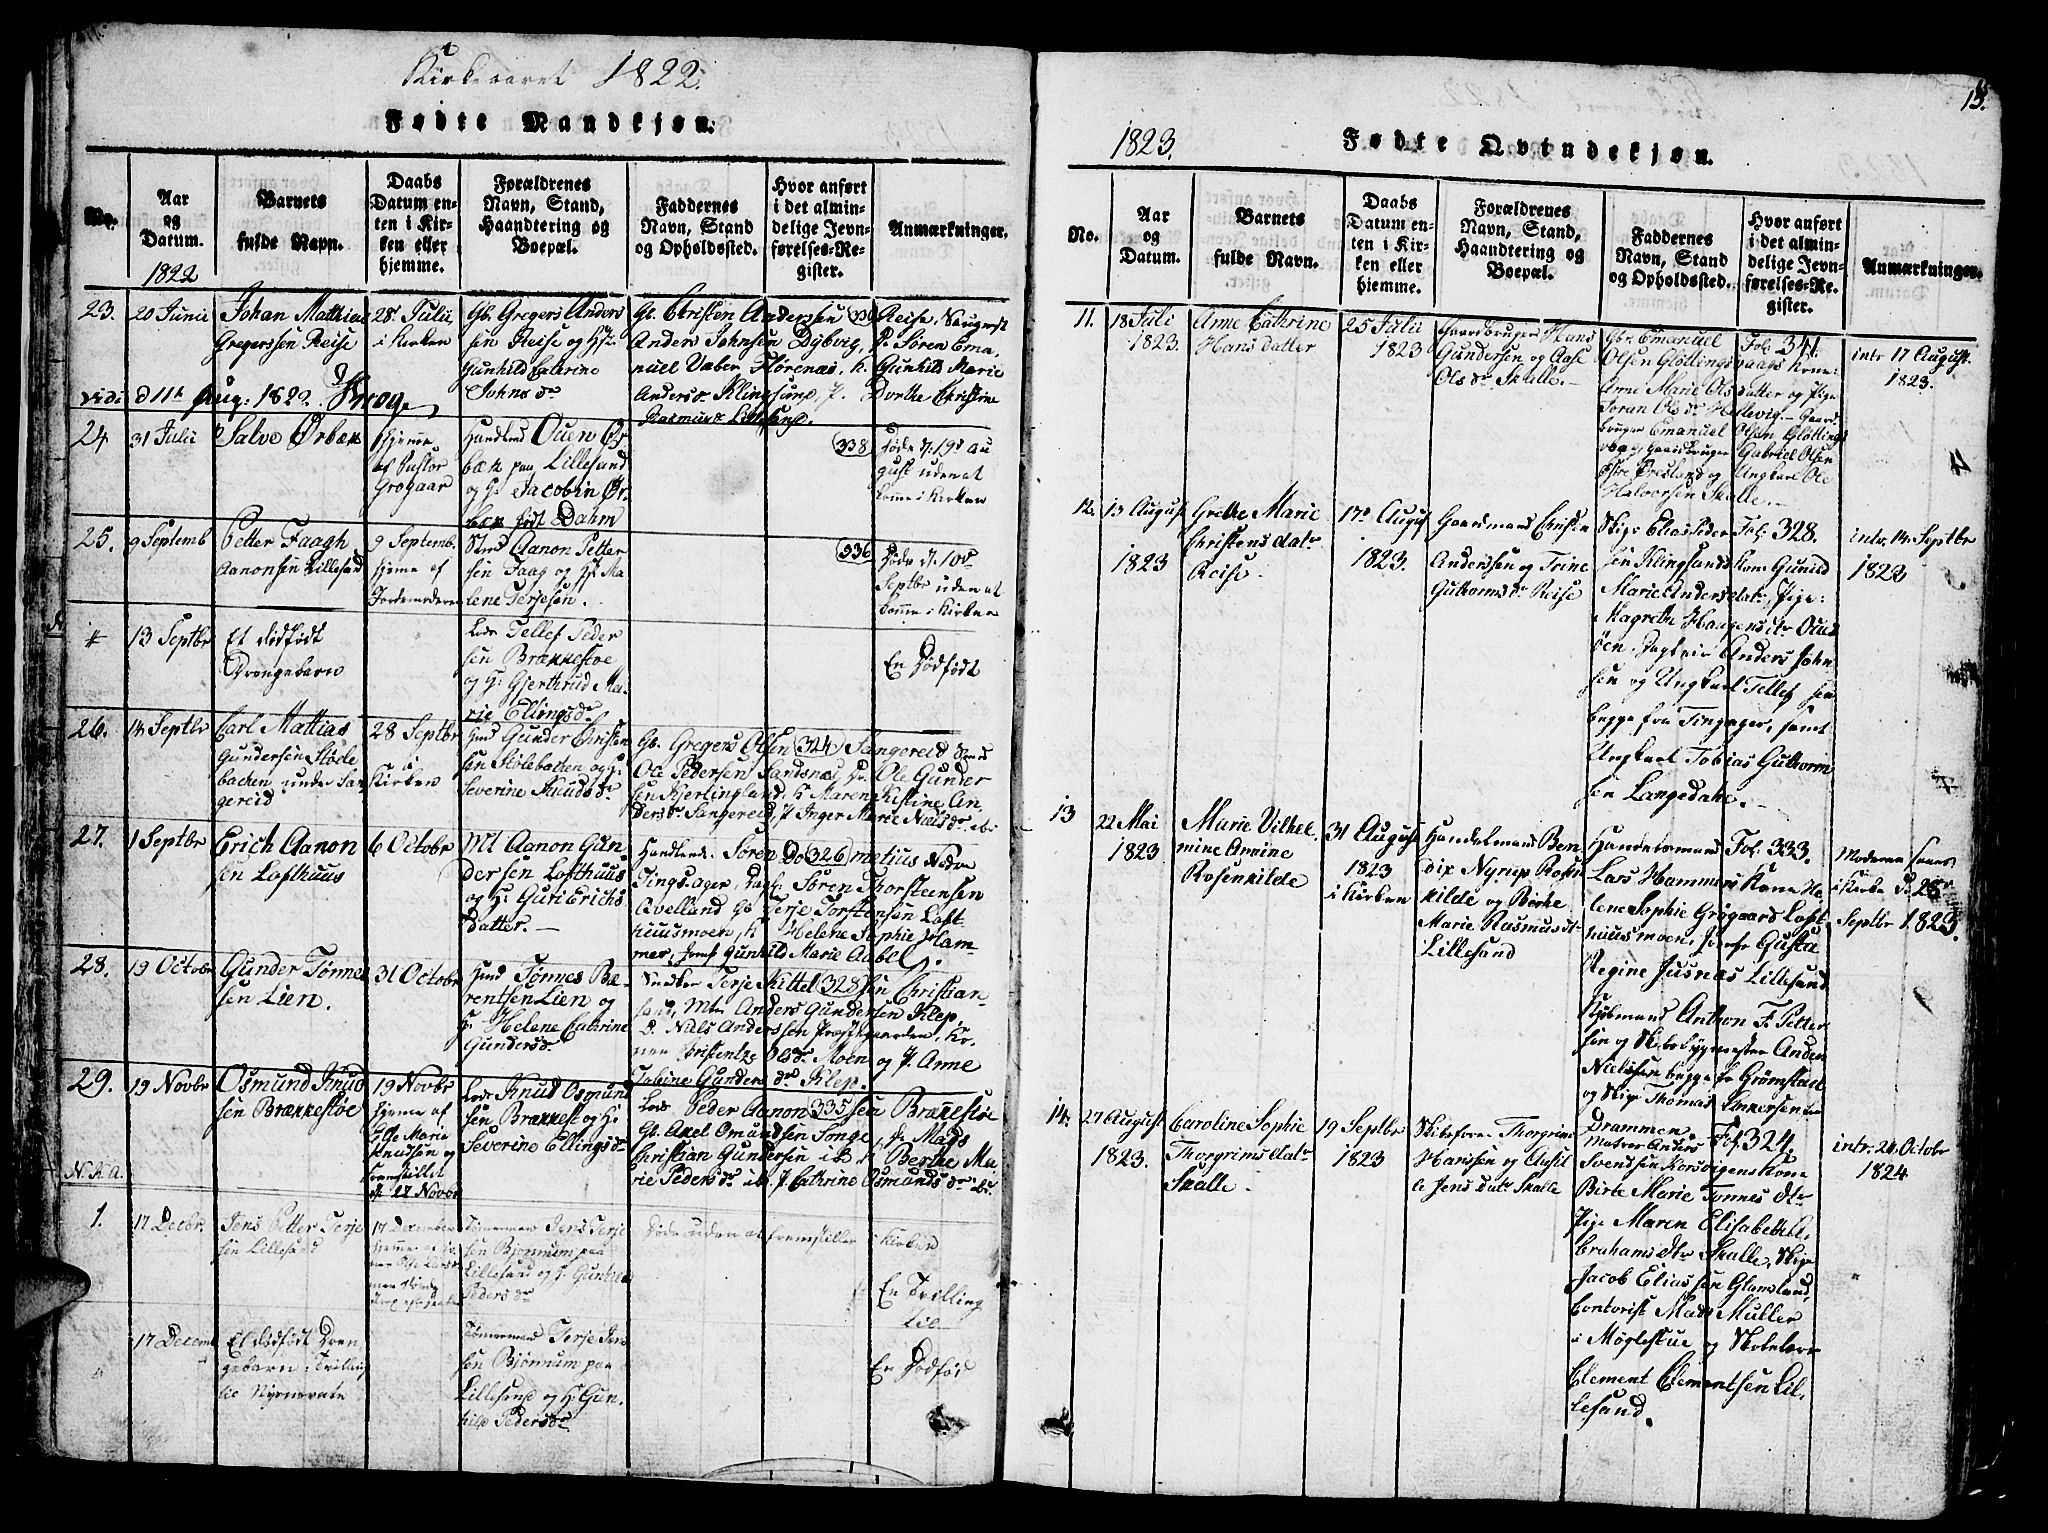 Kirkeaaret 1822.
Fødte Mandkjøn.
No.
Aar og Datum.
1822
Barnets fulde Navn.
Daabs Datum enten i Kirken eller hjemme.
Forældrenes Navn, Stand, Haandtering og Boepæl.
Faddernes Navn, Stand og Opholdssted.
Hvor anført i det almindelige Jevnførelses-Register.
Anmærkninger.
23.
20 Junii
Johan Mathias
Gregerssen Reise
28 Julii
i Kirken
Gb. Gregers Anders
sen Reise og H
Gunhild Cathrine
Johns dr
Gb. Christen Andersen 330 Reise,
Anders Johnsen Dybvig, P. Søren Ema
nuel Vaber Hørenæs, K. Gunhild Marie
Andersdr Klingsund, P. Dorthe Christine
Rasmusdr Lillesand.
vidi d 11te Aug: 1822. Krog
24
31 Julii
Salve Ørbæk
Hjemme
af Pastor
Grogaar
Handlend Ouen Ør
bæk paa Lillesand
og H. Jacobin Ør
bæk fød Dahm
338
Døde d. 19d Au
gust uden at
komme i Kirken
25.
9 Septemb
Petter Faagh
Aanonsen Lillesand
9 Septemb.
hjeme af
Jordemoderen
Aanon Petter
sen Faag og H. Ma
lene Terjesen.
336
Døde d. 10d
Septbr uden at
komme i Kirken
#
13 Septbr
Et dødfødt
Drengebarn
Lods Tellef Peder
sen Brækkestøe
og H. Gjerthrud Ma
rie Ellingsdr
En Dødfødt
26.
14 Septbr
Carl Mattias
Gundersen Støle
backen under San
gereid
28 Septbr
i
Kirken
Hmd Gunder Christen
sen Stølebacken og H.
Severine Knudsdr
Gb. Gregers Olsen 324 Sangereid
Ole Pedersen Sandsnæs, Ole Gunder
sen Kjerlingland, K. Maren Kistine An
dersdr Sangereid, P. Inger Marie Nielsdr ibi
27.
1 Septbr
Erich Aanon
sen Lofthuus
6 Octobr
Mt Aanon Gun
dersen Lofthuus
og H. Guri Erichs
datter.
Handlende Søren Do 326 metius Nedre
Tingsager, Søren Thorsteensen
Qvelland Gb Terje Torstensen Loft
huusmoen, K Helene Sophie Ham
mer, Jomf Gunhild Marie Aabel.
28.
19 Octobr
Gunder Tønnes
sen Lien.
31 Octobr
Hmd Tønnes Bæ
rentsen Lien og
H. Helene Cathrine
Gundersdr
Snedker Terje Kittel 328 sen Christian
sand, Mtr Anders Gundersen Kilep,
D. Niels Anderssen Præstegaarden, Ko
nen Olsdr Moen og P. Anne
Tobine Gundersdr Kilep.
29.
19 Novbr
Osmund Knud
sen Brækkestøe
19 Novbr
hjeme af
Else Marie
Knudsen og
Fremstillet
d. 27 Novbr
Lods Knud Osmund
sen Brækkest og H.
Severine Ellingsdr
Lods Peder Aanon 335 sen Brækkestøe
Gb. Axel Omundsen Songe, de Mads
Christian Gundersen ib K Berthe Ma
rie Pedersdr ib. P Cathrine Osmundsdr ib.
N. Aa.
1.
17 Decbr.
Jens Petter Terje
sen Lillesand
17 December
hjemme af
Tømmermand Jens Terje
sen Bjønnum paa
Lillesand og H. Gunhild
Pedersdr
Døde uden at fremstilles i Kirken
En Tvilling
17 Decemb
Et dødfødt Dren
gebarn Tvilling
Tømmermand Terje Jen
sen Bjønnum paa
Lillesand og H. Gun
hild Pedersdr
En Dødfød
13.
1823.
Fødte Qvindekjøn.
No.
Aar og Datum.
Barnets fulde Navn.
Daabs Datum enten i Kirken eller hjemme.
Forældrenes Navn, Stand, Haandtering og Boepæl.
Faddernes Navn, Stand og Opholdssted.
Hvor anført i det almindelige Jevnførelses-Register.
Anmærkninger.
11.
18 Juli
1823.
Anne Cathrine
Hans datter
25 Julii
1823
Gaardbruger Hans
Gundersen og Aase
Ols dr Skalle.
Gbr. Emanuel Fol: 341.
Olsen Glöttingsvaags Kone
Anne Marie Olsdatter og Pige
Joran Olsdr Hellevig. Gaard
bruger Emanuel Olsen Glöttings
vaag, Gaardbruger Gabriel Olsen
Østre Presland og Ungkarl Ole
Halvorsen Skalle.
intr 17 August.
1823.
12.
13 August
1823
Grethe Marie
Christens datr
Reise.
17d August
1823.
Gaardmand Christen
Anderssen og Trine
Guttormsdr Reise
Skipr Elias Peder Fol: 328.
sen Klingsunds Kone Gunild
Marie Andersdatr, Pige
Magreth Haagensdtr Ouus
öen, Anders John
sen og Ungkarl Tellef sen
begge fra Tingsager, samt
Ungkarl Tobias Guttorm
sen Langedahl.
intr. 14 Septbr
1823
13
22 Mai
1823
Marie Vilhel
mine Amine
Rosenkilde
31 August
1823
i Kirken
Handelsmand Ben
dix Nyrup Rosen
kilde og Birthe
Marie Rasmusdr
Lillesand
Handelsmand Fol. 333.
Lars Hammers Kone He
lene Sophie Grögaard Loft
huusmoen, Jomfr Gusta
Regine Jusnæs Lillesand
Kjøbmand Anthon F. Petter
sen og Skibsbygmester Anders
Nielssen begge fr Grømstad
og Skipr Thomas Emkersen fra
Drammen
Moderen
i Kirke d. 28
Septbr 1823.
14.
27 August
1823.
Caroline Sophie
Thorgrims datr
Skalle.
19 Septbr
1823
Skibsfører Thorgrim
Hanssen og Aasil
le Jens datr Skalle
Matros Anders Fol. 324.
Svendsen Korsvigens Kone
Birte Marie Tønnes dtr
Pige Maren Elisabeth A
brahams dtr Skalle, Skipr
Jacob Eliassen Glamsland,
Contorist Mads Müller
i Møglestue og Skolelærer
Clement Clementsen Lil
lesand.
intr. 24 Octobr
1824